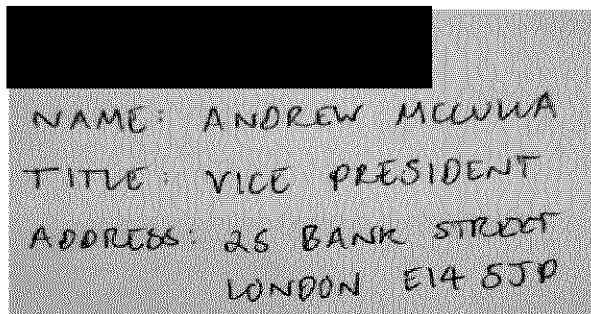 NAME: ANDREW
TITLE: VICE PRESIDENT
ADDRESS: 25 BANK STREET
LONDON E14 5JP